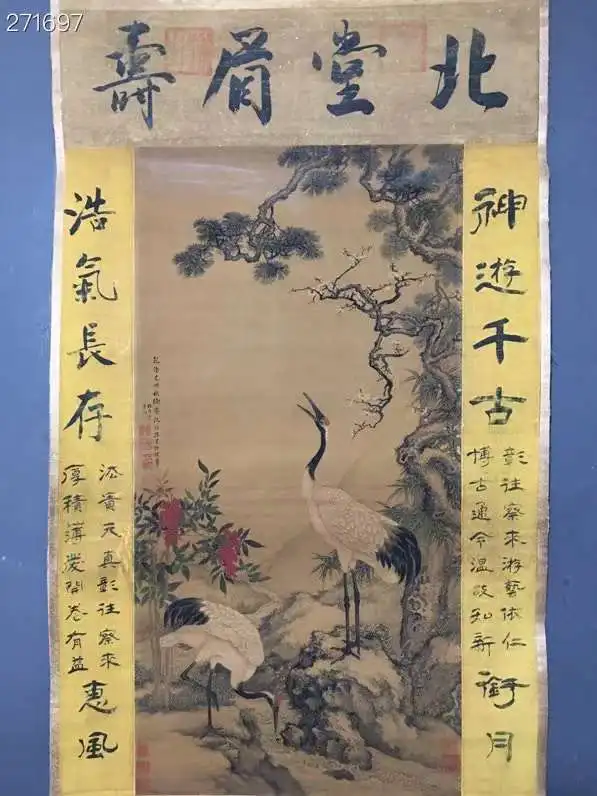 271697
北堂眉壽
神遊千古
彰往察來游藝依仁
博古通今溫故知新
月
浩氣長存
天真彰往察來
厚積薄發開卷有益
惠風